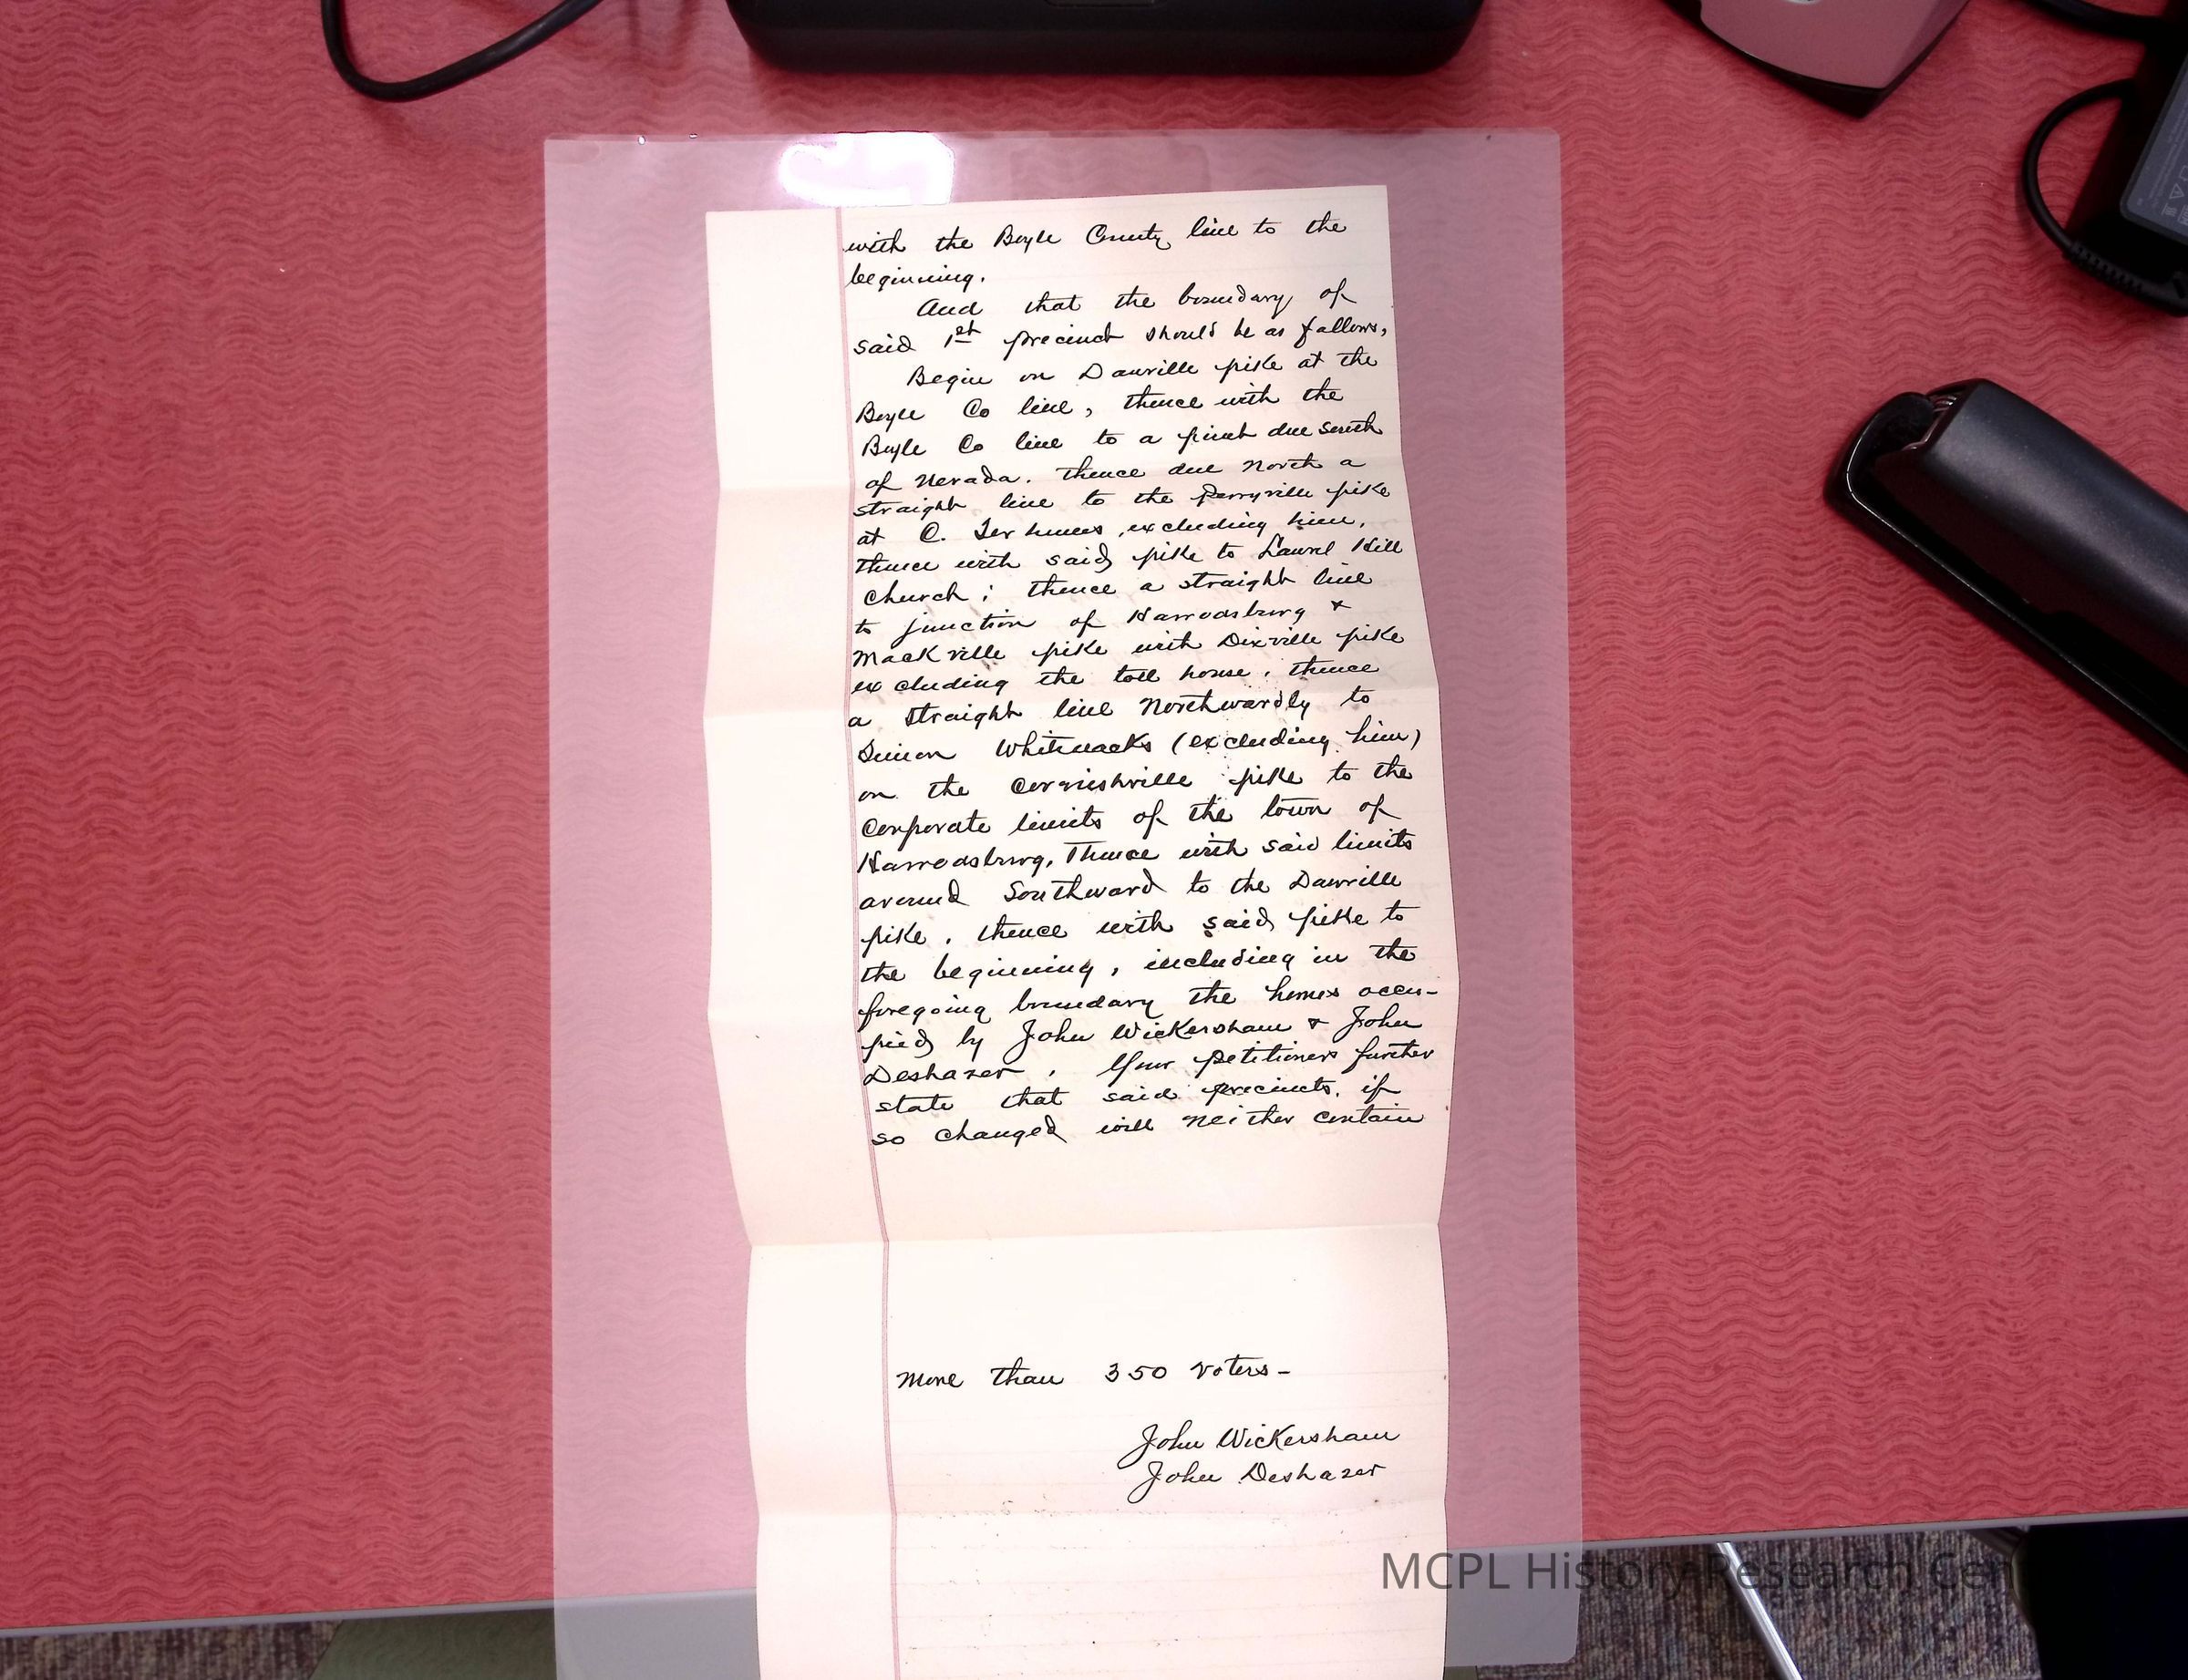 with the Boyle County line to the
beginning.
And that the boundary of
said 1st precinct should be as follows,
Begin on Danville pike at the
Boyle Co line, thence with the
Boyle Co line to a point due south
of Nevada. thence due North a
straight line to the Perryville pike
at C. Terhunes, excluding him,
thence with said pike to Laurel Hill
church; thence a straight line
to junction of Harrodsburg &
Mackville pike with Dixville pike
excluding the toll house, thence
a straight line Northwardly to
Simon Whitenacks (excluding him)
on the Cornishville pike to the
corporate limits of the town of
Harrodsburg, Thence with said limits
around Southward to the Danville
pike, thence with said pike to
the beginning, including in the
foregoing boundary the homes occu-
pied by John Wickersham & John
Deshazer. Your petitioners further
state that said precincts, if
so changed will neither contain
more than 350 voters-
John Wickersham
John Deshazer
MCPL History Research Cen